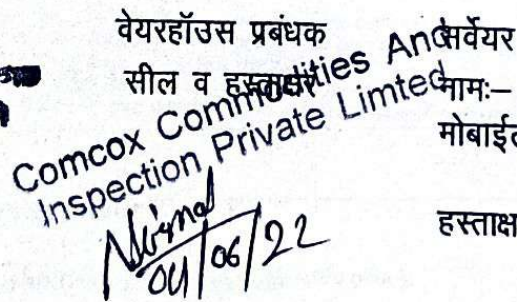 वेयरहॉउस प्रबंधक
सील व हस्ताक्षर
Comcox Commodities And
Inspection Private Limted
Nirmal
04/06/22
सर्वेयर
नामः–